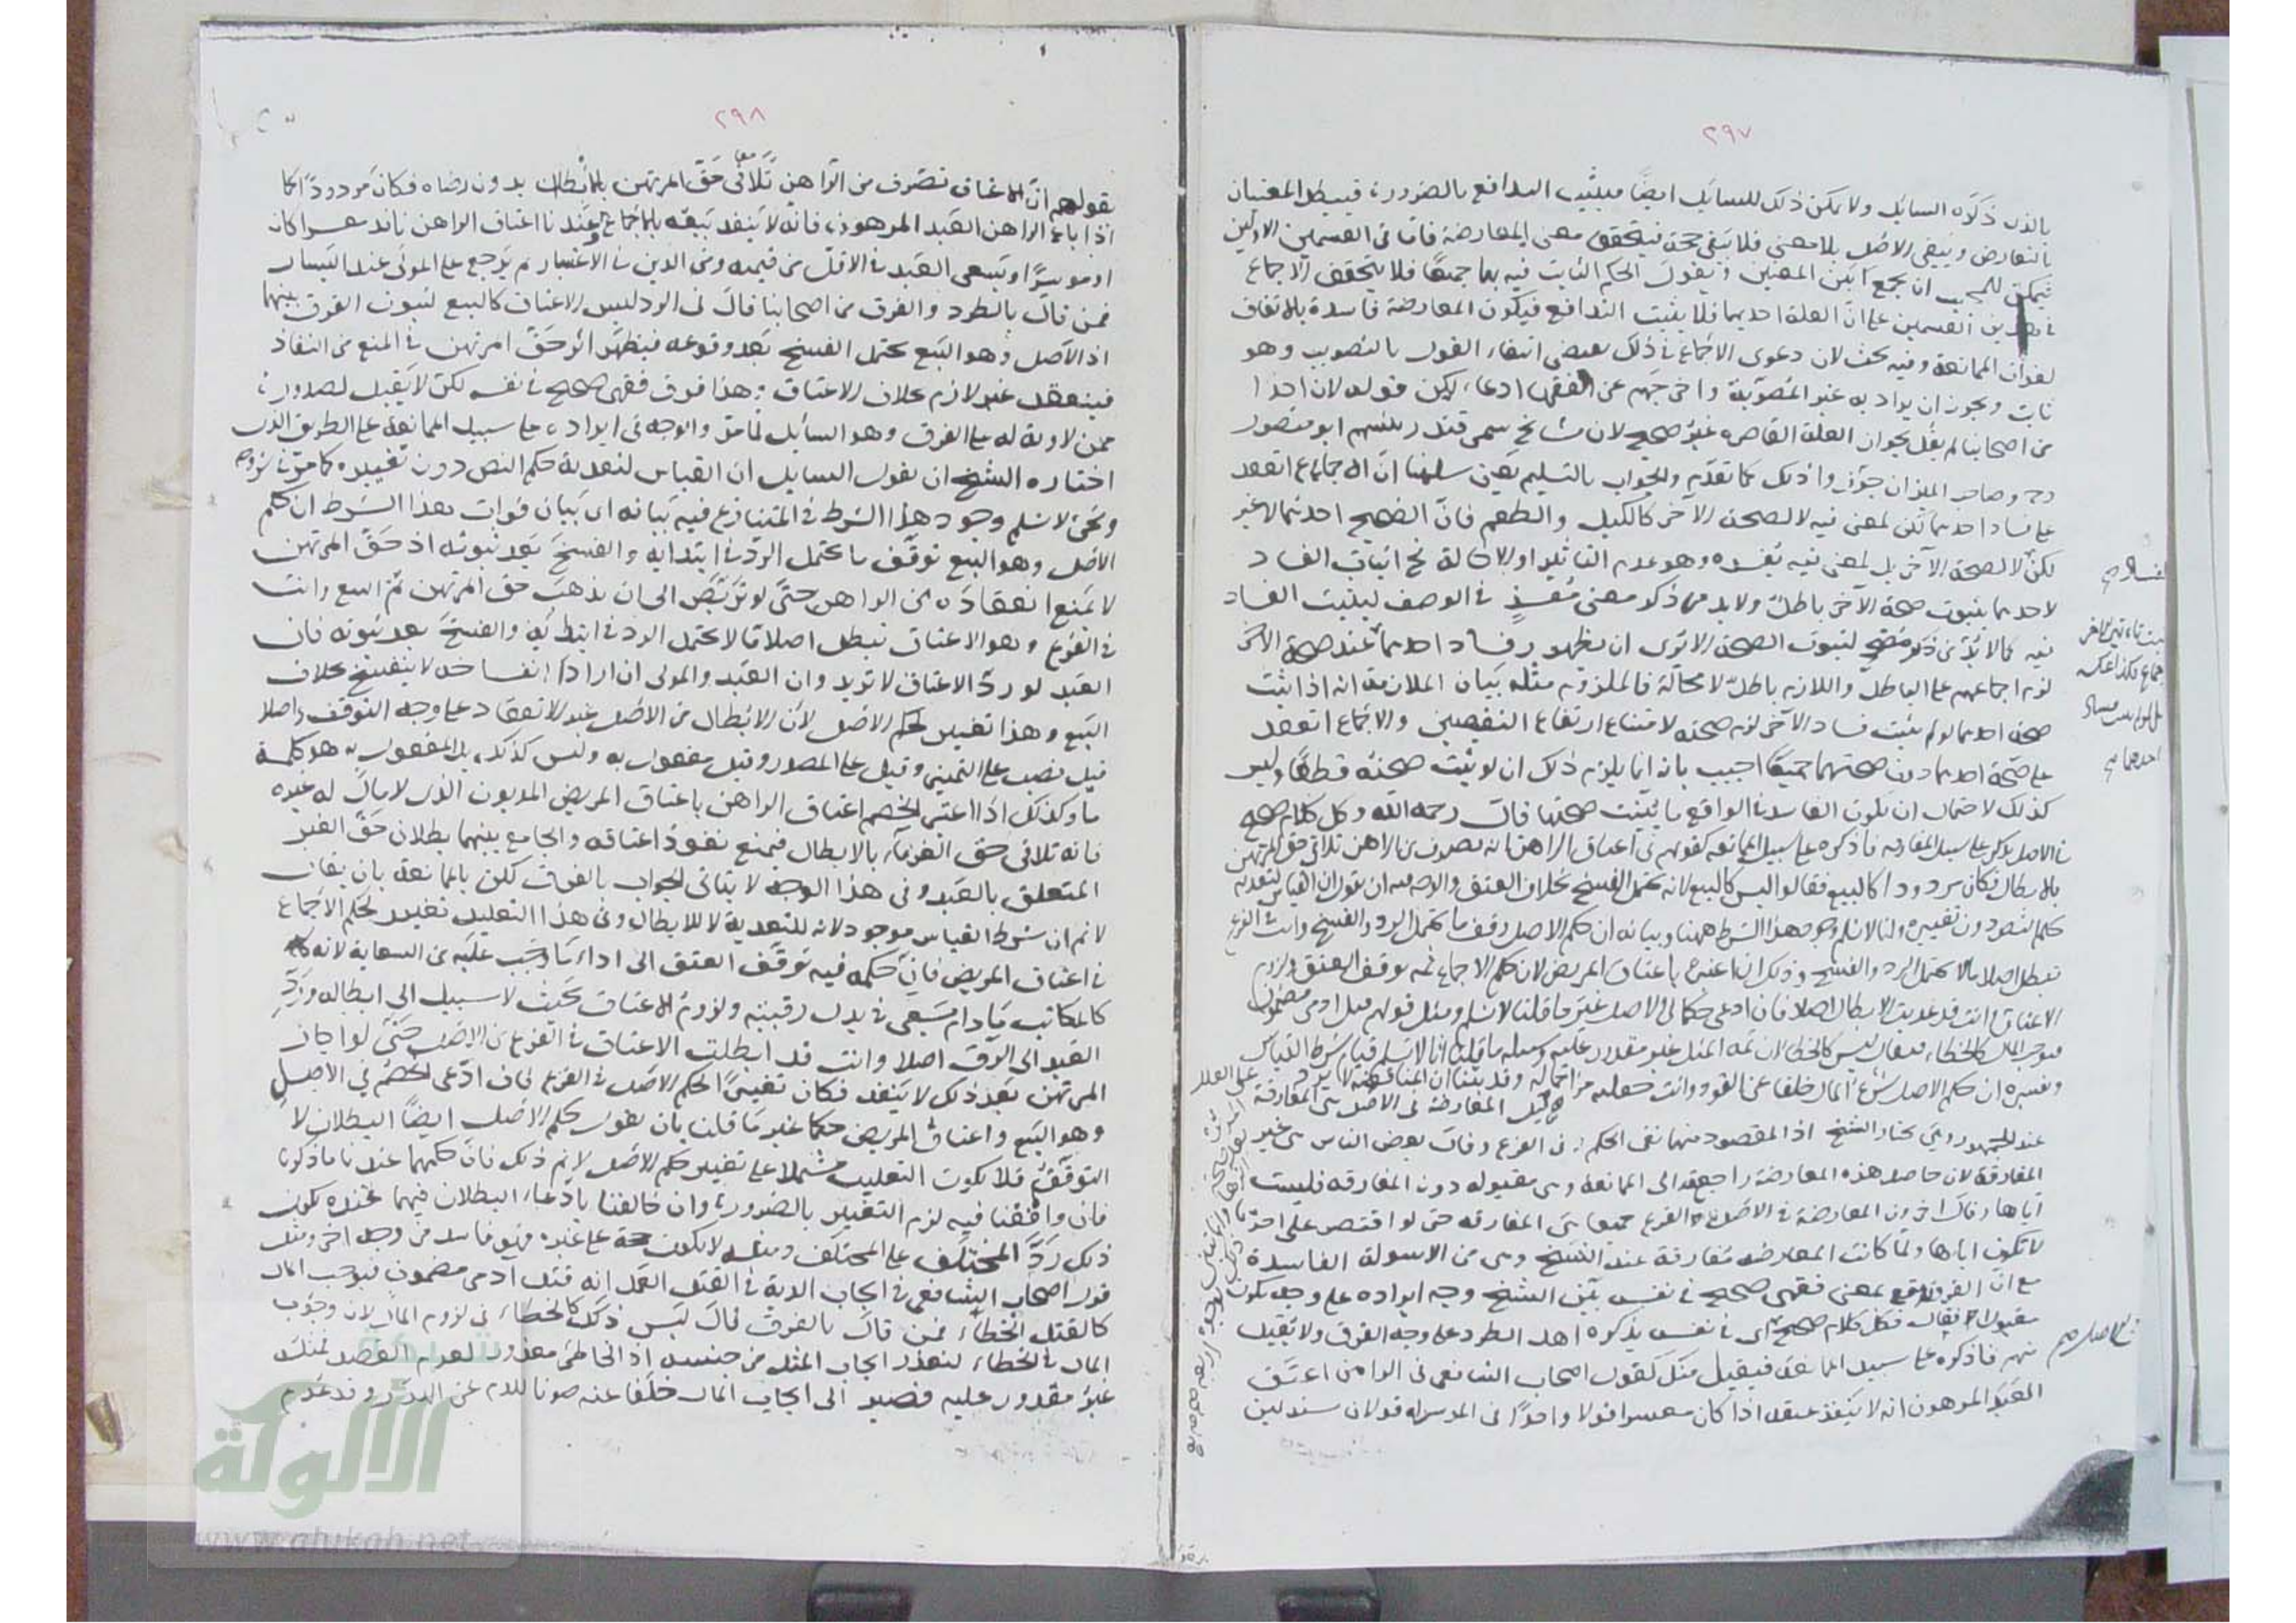 ٢٩٧
بالذى ذكره السايل ولا يكن ذلك للسايل ايضا فيثبت التدافع بالضرورة فيبطل المعنيان
بالتعارض ويبقى الاصل بلا معنى فلا تبقى حجة فيتحقق معنى المعارضة فاما فى القسمين الاولين
فيمكن للمجيب ان يجمع بين المعنيين ويقول الحكم الثابت فيه بهما جميعا فلا يتحقق الاجماع
فى هذين القسمين على ان العلة احديهما فلا يثبت التدافع فيكون المعارضة فاسدة بالاتفاق
لفوات الممانعة وفيه بحث لان دعوى الاجماع فى ذلك يقتضى انتفاء القول بالتصويب وهو
ثابت ويجوز ان يراد به غير المصوبة واخرجهم عن الفقهاء ادعاء لكن قوله لان احدا
من اصحابنا لم يقل بجواز العلة القاصره غير صحيح لان مشايخ سمرقند رئيسهم ابو منصور
رح وصاحب الميزان جوزوا ذلك كما تقدم والجواب بالتسليم يعنى سلمنا ان الاجماع انعقد
على فساد احديهما لكن لمعنى فيه لا لصحة الآخر كالكيل والطعم فان الصحيح احدهما لا غير
لكن لا لصحة الآخر بل لمعنى فيه يفسده وهو عدم التاثير او الاخالة نح اثبات الفساد
لاحدهما بثبوت صحة الآخر باطل ولا بد من ذكر معنى مفسد فى الوصف ليثبت الفساد
فيه كما لا بد من ذكر مصحح لثبوت الصحة الا ترى ان بظهور فساد احدهما عند صحة الآخر
لزم اجماعهم على الباطل واللازم باطل لا محالة فالملزوم مثله بيان الملازمة انه اذا ثبت
صحة احدهما لو لم يثبت فساد الآخر لزم صحته لامتناع ارتفاع النقيضين والاجماع انعقد
على صحة احدهما دون صحتهما جميعا اجيب بانه انما يلزم ذلك ان لو ثبت صحته قطعا وليس
كذلك لاحتمال ان يكون الفاسد فى الواقع ما يثبت صحتها قال رحمه الله وكل كلام صحيح
فى الاصل يذكر على سبيل المفارقه فاذكره على سبيل الممانعه كقولهم فى اعتاق الراهن انه تصرف من الراهن تلاقى حق المرتهن
بالابطال فكان مردودا كالبيع فقالوا ليس كالبيع لانه يحتمل الفسخ بخلاف العتق والوجه فيه ان يقول ان القياس لتعدية
حكم النص دون تغييره وانا لا نسلم وجود هذا الشرط ههنا وبيانه ان حكم الاصل وقف ما يحتمل الرد والفسخ وانت فى الفرع
تبطل اصلا ما لا يحتمل الرد والفسخ وذلك ان اعتبره باعتاق المريض لان حكم الاجماع ثمه توقف العتق ولزوم
الاعتاق وانت قد عديت الابطال اصلا فان ادعى حكما فى الاصل غير ما قلنا لا نسلم ومثل قولهم قتل ادمى مضمون
فيوجب المال كالخطاء فيقال ليس كالخطاء لان ثمه المثل غير مقدور عليه وسبيله ما قلنا انا لا نسلم قيام شرط القياس
وتفسيره ان حكم الاصل شرع المال خلفا عن القود وانت جعلته مزاحما له وقد بينا ان المناقضة لا ترد على العلل
عند الجمهور وهى مختار الشيخ اذ المقصود منها نفى الحكم فى الفرع وقال بعض الناس هى غير
المفارقة لان حاصل هذه المعارضة راجع الى الممانعة وهى مقبوله دون المفارقه فليست
اياها وقال اخرون المعارضة فى الاصل والفرع جميعا هى المفارقه حتى لو اقتصر على احدهما
لا تكون اياها ولما كانت المعارضه مفارقة عند الشيخ وهى من الاسولة الفاسدة
مع ان الفرق يقع بمعنى فقهى صحيح فى نفسه بين الشيخ وجه ايراده على وجه يكون
مقبولا فقال فكل كلام صحيح اى فى نفسه يذكره اهل الطرد على وجه الفرق ولا يقبل
منهم فاذكره على سبيل الممانعة فيقبل مثل كقول اصحاب الشافعى فى الراهن اعتق
العبد المرهون انه لا ينفذ عتقه اذا كان معسرا قولا واحدا فى الموسر له قولان مستدلين
فى الاصل صح
احدهما صح
٢٩٨
بقولهم ان الاعتاق تصرف من الراهن تلاقى حق المرتهن بالابطال بدون رضاه فكان مردودا كما
اذا باع الراهن العبد المرهون فانه لا ينفد بيعه بالاجماع وعندنا اعتاق الراهن نافد معسرا كان
او موسرا ويسعى العبد فى الاقل من قيمته ومن الدين فى الاعسار ثم يرجع على المولى عند اليسار
فمن قال بالطرد والفرق من اصحابنا قال فى الرد ليس الاعتاق كالبيع لثبوت الفرق بينهما
اذ الاصل وهو البيع يحتمل الفسخ بعد وقوعه فيظهر اثر حق المرتهن فى المنع من النفاذ
فينعقد غير لازم بخلاف الاعتاق وهذا فرق فقهى صحيح فى نفسه لكن لا يقبل لصدوره
ممن لا ولاية له على الفرق وهو السائل لما مر والوجه فى ايراده على سبيل الممانعة على الطريق الذى
اختاره الشيخ ان يقول السايل ان القياس لتعدية حكم النص دون تغييره كما مر فى شروطه
ونحن لا نسلم وجود هذا الشرط فى المتنازع فيه بيانه اى بيان فوات هذا الشرط ان حكم
الاصل وهو البيع توقف ما يحتمل الرد فى ابتدائه والفسخ بعد ثبوته اذ حق المرتهن
لا يمنع انعقاده من الراهن حتى لو تربص الى ان يذهب حق المرتهن تم البيع وانت
فى الفرع وهو الاعتاق تبطل اصلا ما لا يحتمل الرد فى ابتدائه والفسخ بعد ثبوته فان
العبد لو رد الاعتاق لا يرتد وان العبد والمولى ان ارادا انفساخه لا ينفسخ بخلاف
البيع وهذا تغيير لحكم الاصل لان الابطال من الاصل غير الانعقاد على وجه التوقف واصلا
قيل نصب على التمييز وقيل على المصدر وقيل مفعول به وليس كذلك بل المفعول به هو كلمة
ما وكذلك اذا اعتبر الخصم اعتاق الراهن باعتاق المريض المديون الذى لا مال له غيره
فانه تلاقى حق الغرماء بالابطال فيمنع نفوذ اعتاقه والجامع بينهما بطلان حق الغير
المتعلق بالعبد وفى هذا الوجه لا يتاتى الجواب بالفرق لكن بالممانعة بان يقال
لا نم ان شرط القياس موجود لانه للتعدية لا للابطال وفى هذا التعليل تغيير لحكم الاجماع
فى اعتاق المريض فان حكمه فيه توقف العتق الى اداء ما وجب عليه من السعاية لانه
كالمكاتب ما دام يسعى فى بدل رقبته ولزوم الاعتاق بحيث لا سبيل الى ابطاله ورد
العبد الى الرق اصلا وانت قد ابطلت الاعتاق فى الفرع من الاصل حتى لو اجاز
المرتهن بعد ذلك لا ينفد فكان تغييرا لحكم الاصل فى الفرع فان ادعى الخصم فى الاصل
وهو البيع واعتاق المريض حكما غير ما قلنا بان يقول حكم الاصل ايضا البطلان لا
التوقف فلا يكون التعليل مشتملا على تغيير حكم الاصل لا نم ذلك فان حكمهما عندنا ما ذكرنا
فان وافقنا فيه لزم التغيير بالضرورة وان خالفنا بادعاء البطلان فيهما عنده يكون
ذلك رد المختلف على المختلف ومثله لا يكون حجة على غيره فهو فاسد من وجه اخر ومثله
قول اصحاب الشافعى فى ايجاب الدية فى القتل العمد انه قتل آدمى مضمون فيوجب المال
كالقتل الخطاء فمن قال بالفرق قال ليس ذلك كالخطاء فى لزوم المال لان وجوب
المال فى الخطاء لتعذر ايجاب المثل من جنسه اذ الخاطى معذور لعدم القصد فالمثل
غير مقدور عليه فصير الى ايجاب المال خلفا عنه صونا للدم عن الهدر وقد عدم
شبكة
الألوكة
www.alukah.net